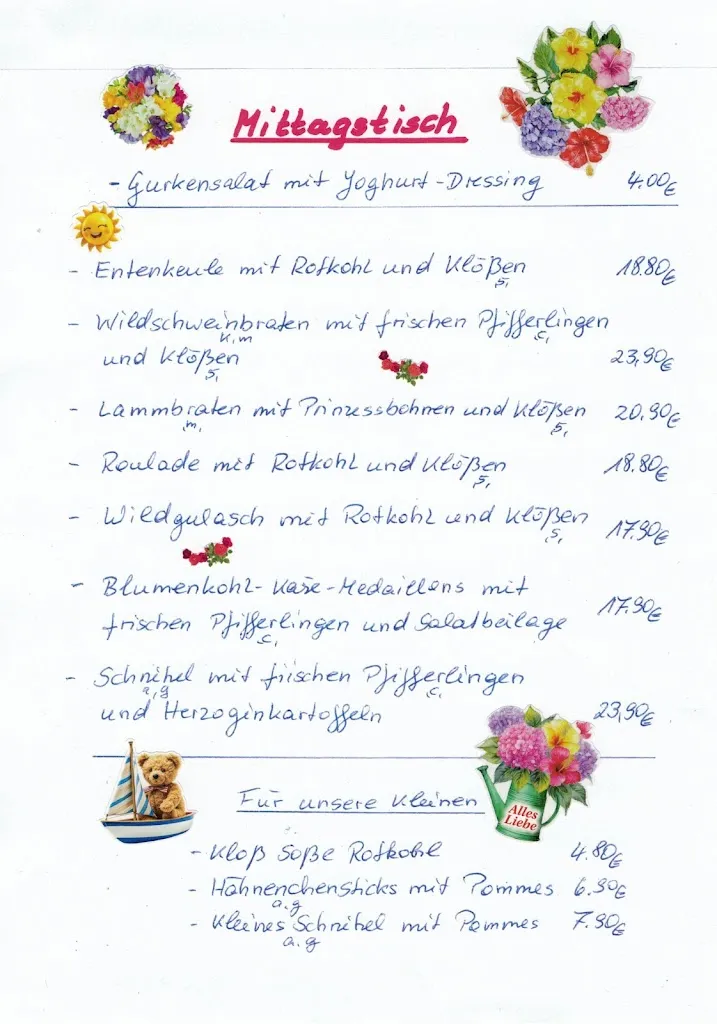 Mittagstisch
- Gurkensalat mit Joghurt-Dressing 4.00€
- Entenkeule mit Rotkohl und Klößen 18.80€
5,
- Wildschweinbraten mit frischen Pfifferlingen
k,m c,
und Klößen 23,90€
5,
- Lammbraten mit Prinzessbohnen und Klößen 20.90€
m, 5,
- Roulade mit Rotkohl und Klößen 18.80€
5,
- Wildgulasch mit Rotkohl und Klößen 17.90€
5,
- Blumenkohl-Käse-Medaillons mit
frischen Pfifferlingen und Salatbeilage 17.90€
c,
- Schnitzel mit frischen Pfifferlingen
a,g c,
und Herzoginkartoffeln 23,90€
Alles
Liebe
Für unsere Kleinen
- Kloß Soße Rotkohl 4.80€
- Hähnenchensticks mit Pommes 6.90€
a.g
- Kleines Schnitzel mit Pommes 7.90€
a.g